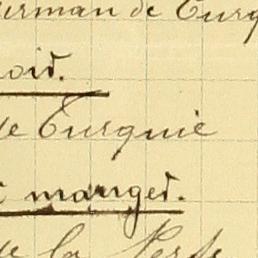 urman de Turq
oid.
de Turquie
t manged.
de la Perse